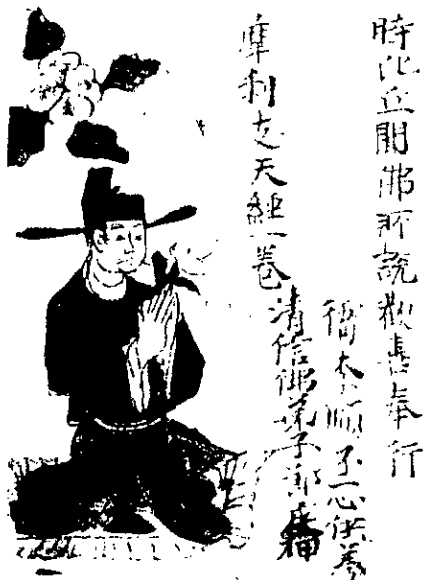 時比丘聞佛所說歡喜奉行
摩利支天經一卷
清信佛弟子
一心供養